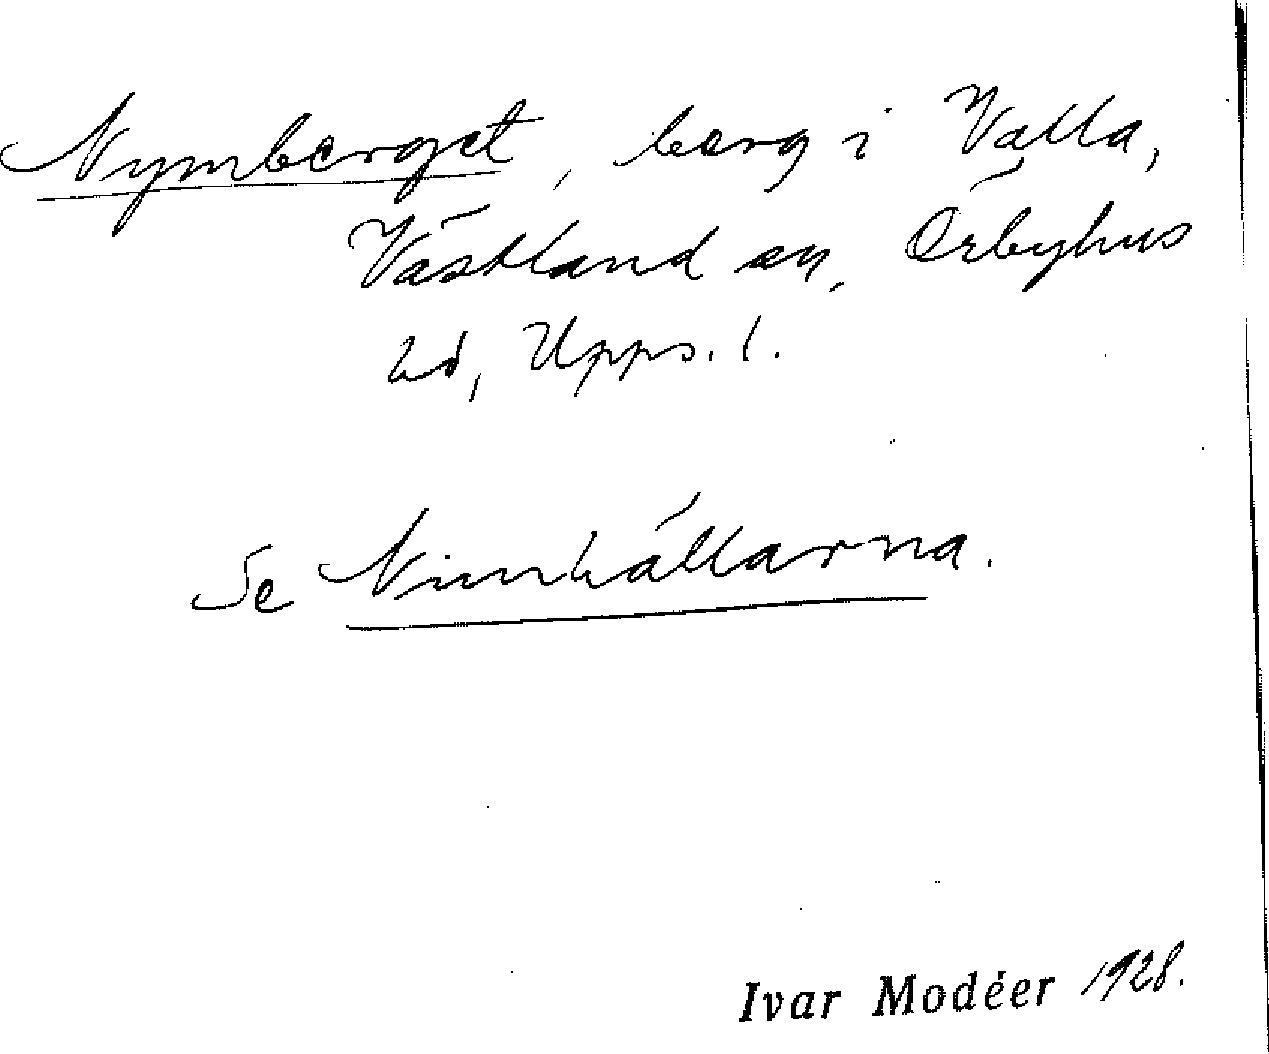 Nymberget, berg i Valla,
Västland sn, Örbyhus
hd, Upps. l.
Se Nimhällarna.
Ivar Modéer 1928.